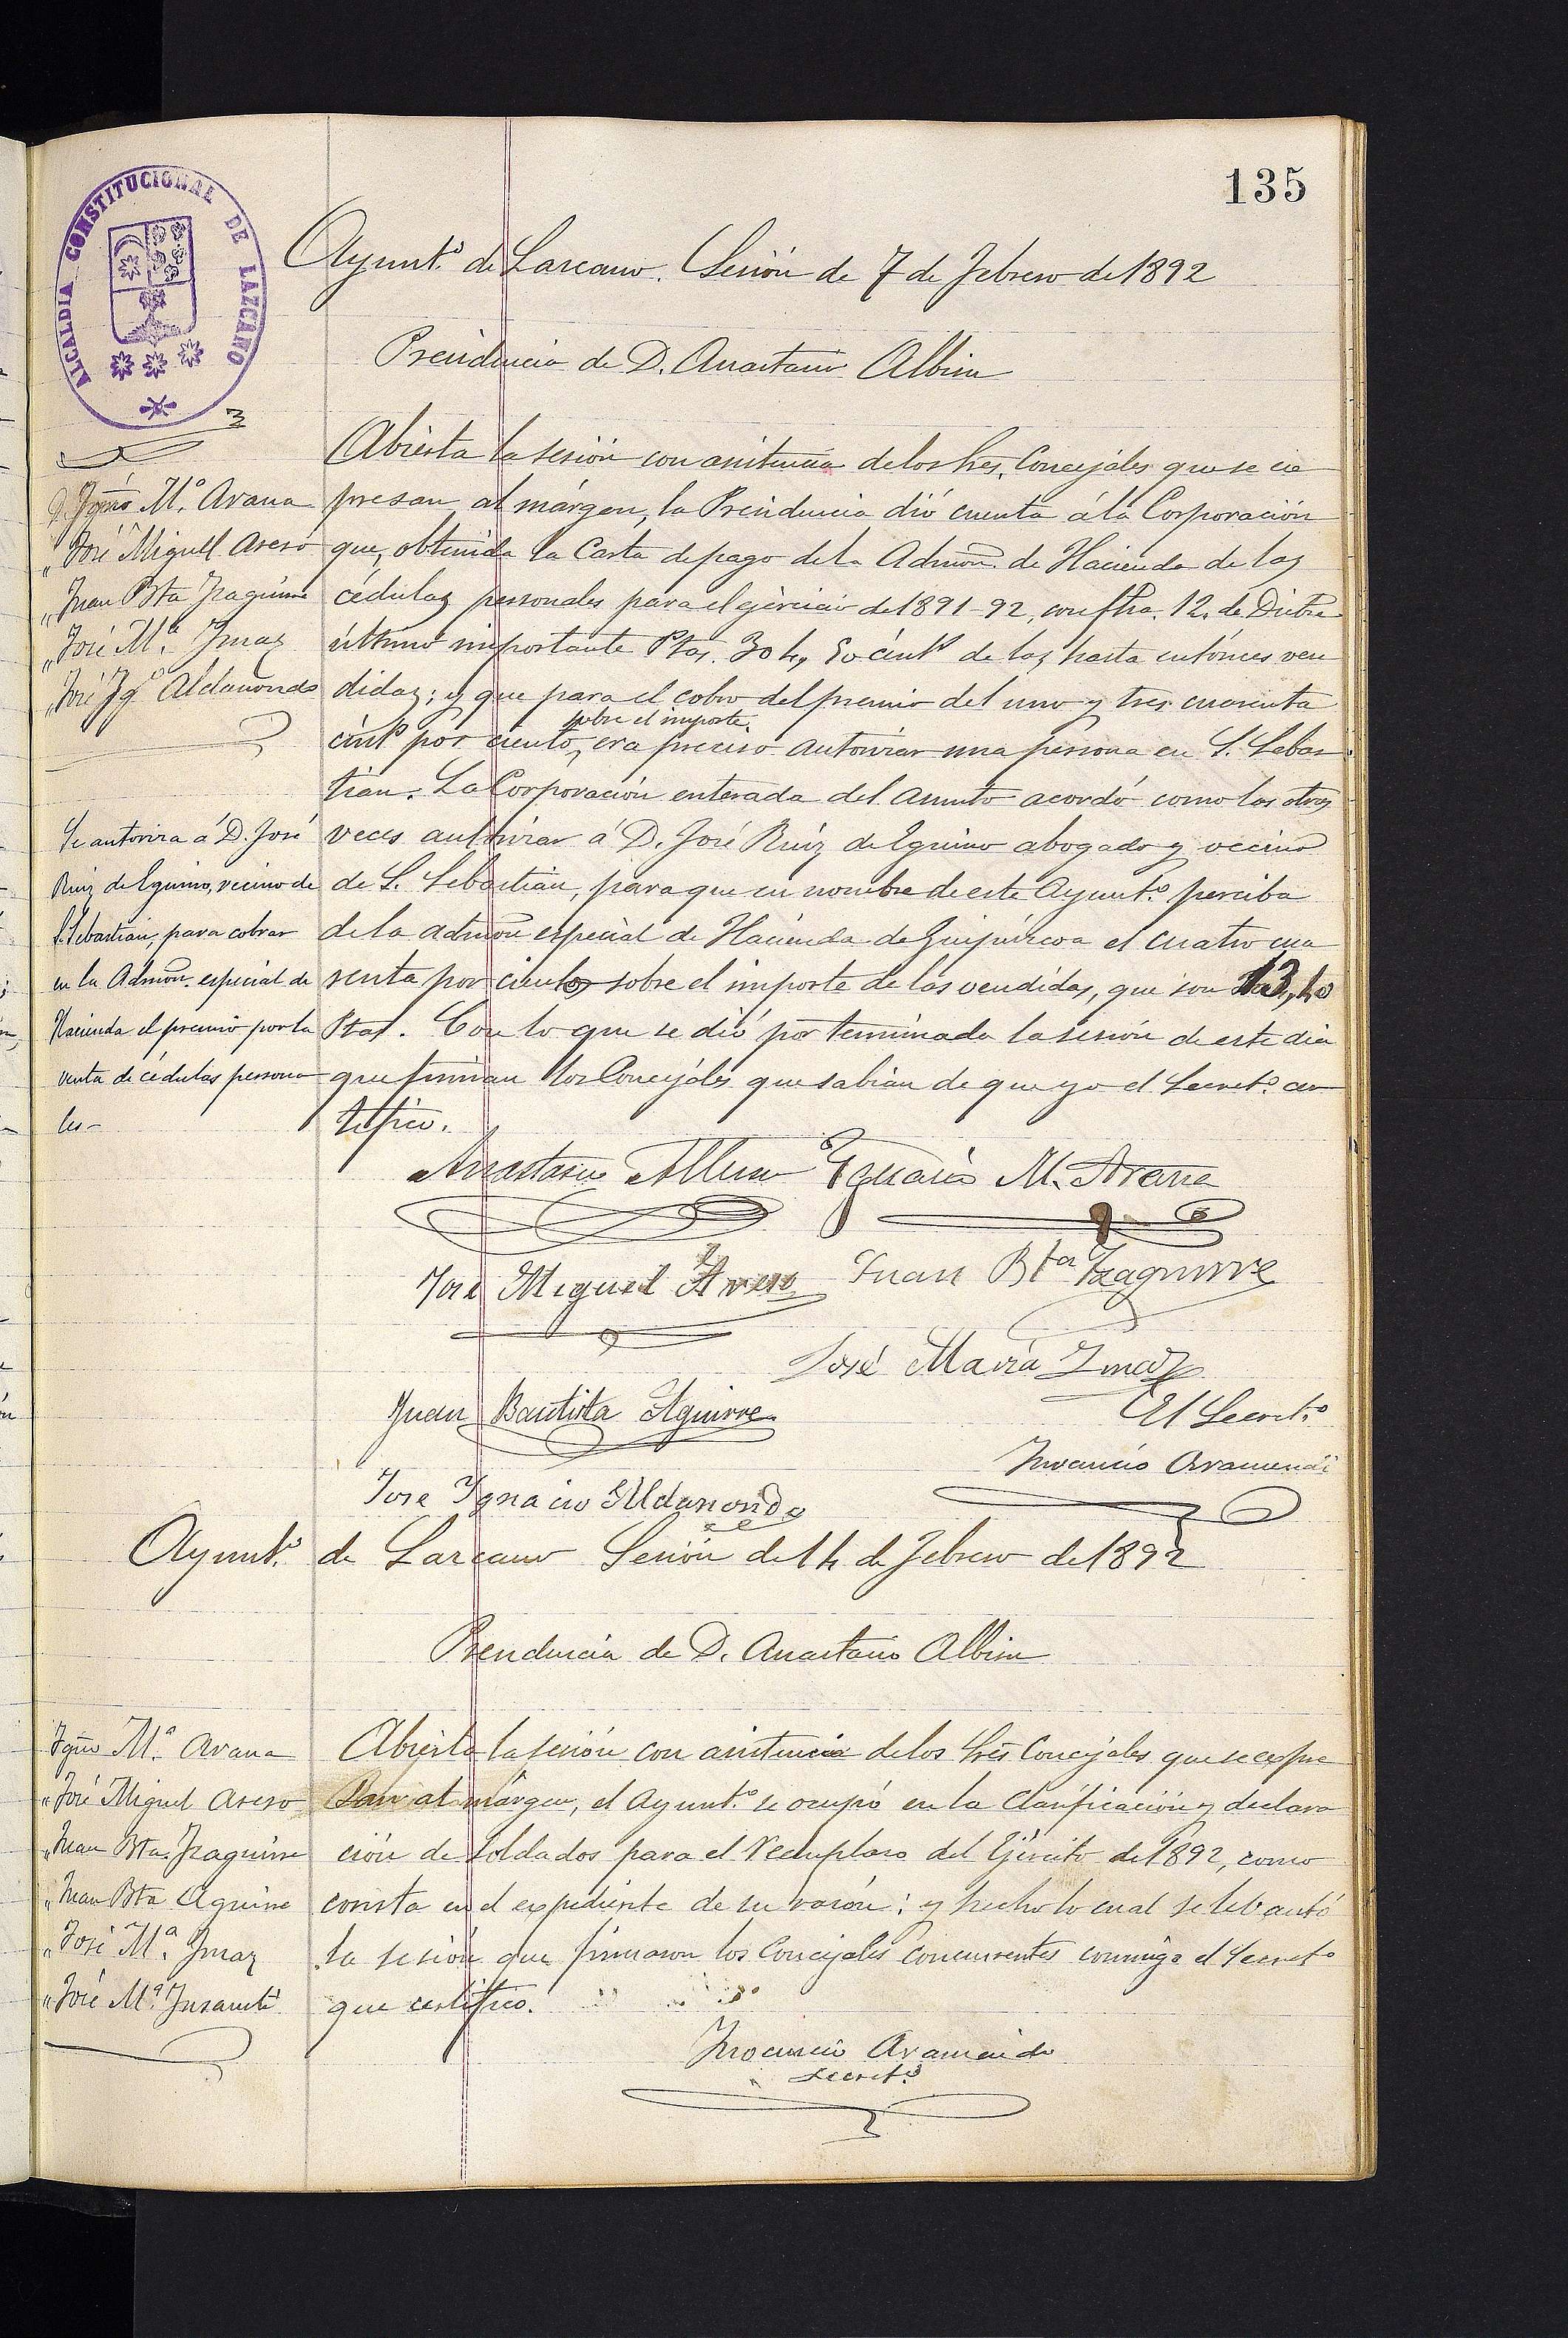 135
ALCALDIA CONSTITUCIONAL DE LAZCANO
Ayunt.º de Lazcano. Sesión de 7 de Febrero de 1892
Presidencia de D. Anastasio Albisu
D. Ygnº M.ª Arana
„ José Miguel Asero
„ Juan Bta Yzaguirre
„ José M.ª Ymaz
„ José Ygº Aldanondo
Abierta la sesión con asistencia de los Sres. Concejales que se ex
presan al márgen, la Presidencia dió cuenta á la Corporación
que, obtenida la Carta de pago de la Admon. de Hacienda de las
cédulas personales para el ejercicio de 1891-92, con fha. 12 de Dicbre
último importante Ptas. 304, 50 cént.s de las hasta entónces ven
didas; y que para el cobro del premio del uno y tres cuarenta
cént.s por ciento, sobre el importe, era preciso autorizar una persona en S. Sebas
tian. La Corporación enterada del asunto acordó como las otras
veces autorizar á D. José Ruiz de Eguino abogado y vecino
de S. Sebastian, para que en nombre de este Ayunt.º perciba
de la admon especial de Hacienda de Guipúzcoa el cuatro cua
renta por ciento sobre el importe de las vendidas, que son 13,40
Ptas. Con lo que se dió por terminada la sesión de este dia
que firman los Concejales que sabian de que yo el Secret.º cer
tifico.
Se autoriza á D. José
Ruiz de Eguino, vecino de
S. Sebastian, para cobrar
en la Admon. especial de
Hacienda el premio por la
venta de cédulas persona
les-
Anastasio Albisu Ygnacio M. Arana
José Miguel Asero Juan Bta Yzaguirre
José María Ymaz
Juan Bautista Aguirre
El Secret.º
Ynocencio Aramendi
Jose Ygnacio Aldanondo
Ayunt.º de Lazcano Sesión de 14 de Febrero de 1892
Presidencia de D. Anastasio Albisu
Ygno M.ª Arana
„ José Miguel Asero
„ Juan Bta. Yzaguirre
„ Juan Bta Aguirre
„ José M.ª Ymaz
„ José M.ª Ynsausti
Abierta la sesión con asistencia de los Sres Concejales que se expre
san al márgen, el Ayunt.º se ocupó en la Clasificación y declara
ción de soldados para el Reemplazo del Ejército de 1892, como
consta en el expediente de su razón; y hecho lo cual se lebantó
la sesión que firmaron los Concejales concurrentes conmigo el Secretº
que certifico.
Ynocencio Aramendi
Secret.º